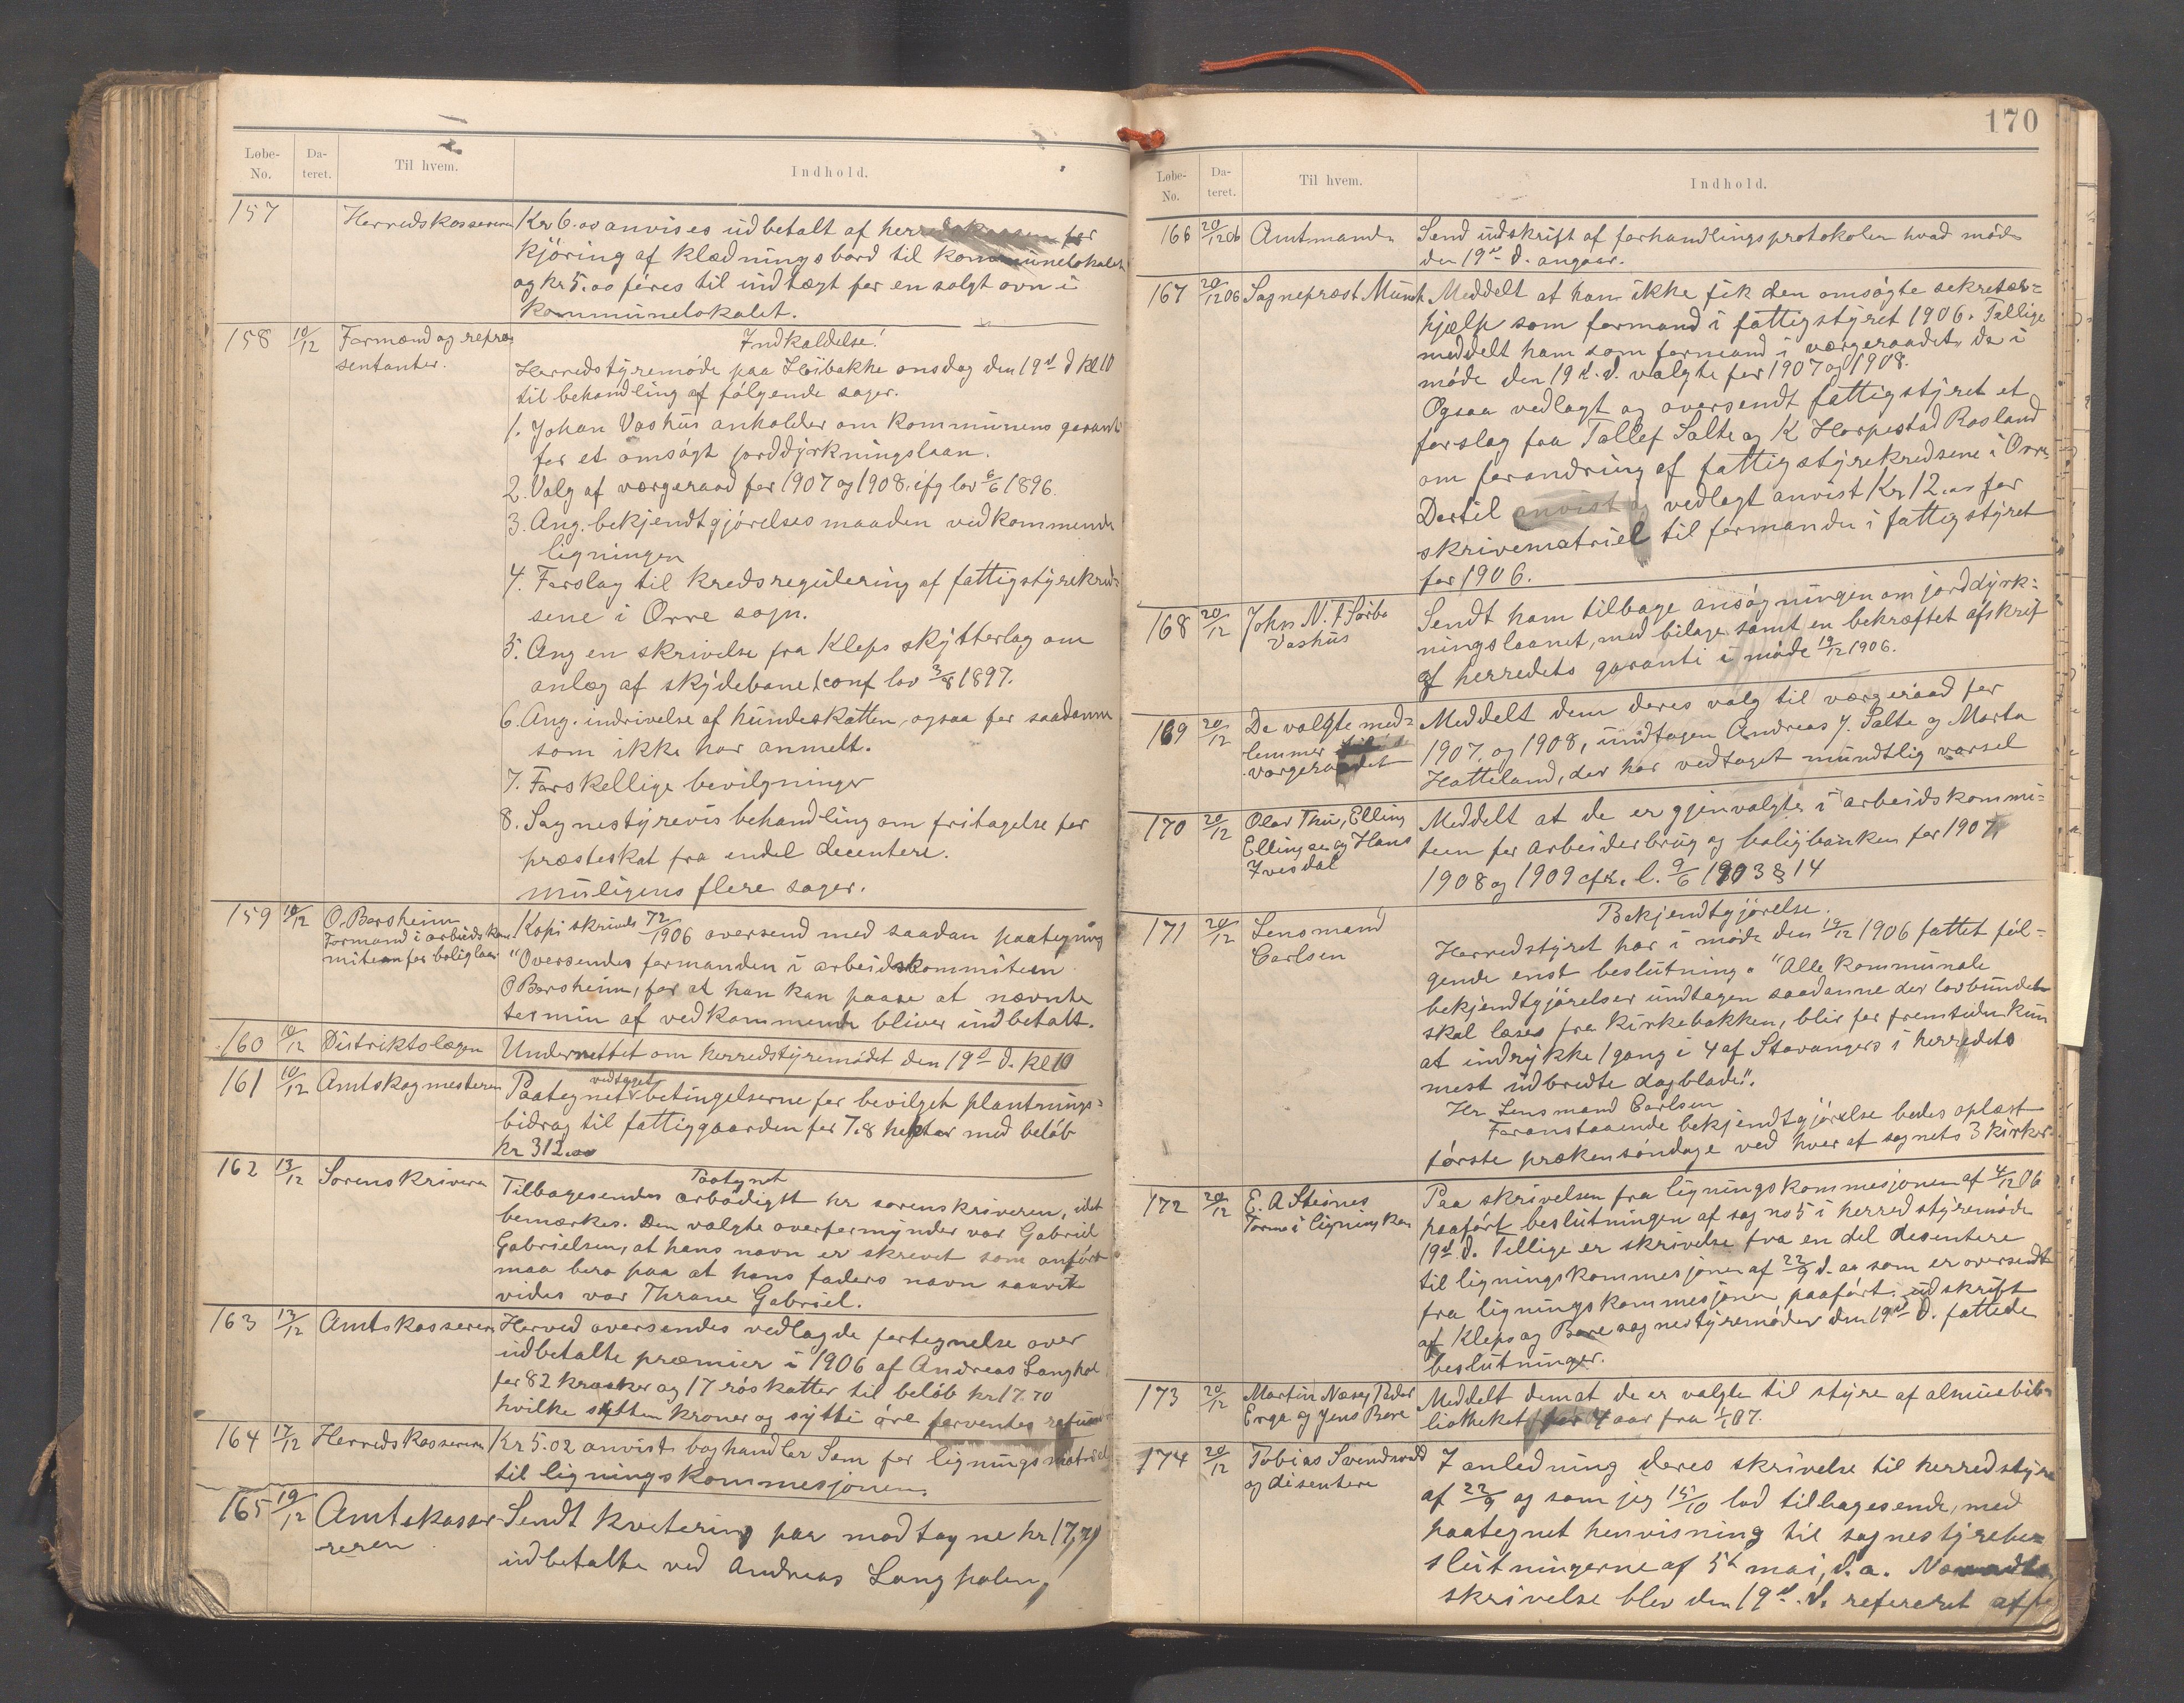 Løbe-No. Dateret. Til hvem. Indhold.
157 Herredskassereren Kr 6.00 anvises udbetalt af herredskassen for
kjøring af klædningsbord til kommunelokalet
og kr 5.00 føres til indtægt for en solgt ovn i
kommunelokalet.
158 10/12 Formænd og repræ
sentanter.
Indkaldelse!
Herredstyremøde paa Høibakke onsdag den 19de d kl 10
til behandling af følgende sager.
1. Johan Vashus anholder om kommunens garanti
for et omsøgt jorddyrkningslaan.
2. Valg af værgeraad for 1907 og 1908. ifg lov 6/6 1896.
3. Ang. bekjendtgjørelses maaden vedkommende
ligningen
4. Forslag til kredsregulering af fattigstyrekred=
sene i Orre sogn.
5. Ang en skrivelse fra Kleps skytterlag om
anlæg af skydebane conf lov 3/8 1897.
6. Ang. indrivelse af hundeskatten, ogsaa for saadanne
som ikke har anmelt.
7. Forskellige bevilgninger
8. Sognestyrevis behandling om fritagelse for
præsteskat fra endel decentere.
muligens flere sager.
159 10/12 O. Børsheim
Formand i arbeidskom
miteen for boliglaan
Kopi skrivels 72/1906 oversend med saadan paategning
"Oversendes formanden i arbeidskommiteen
O Børsheim, for at han kan paase at nævnte
termin af vedkommende bliver indbetalt.
160 10/12 Distriktslægen Underrettet om herredstyremødet den 19de d. kl 10
161 10/12 Amtskogmesteren Paategnet vedtaget betingelserne for bevilget plantnings=
bidrag til fattiggaarden for 7.8 hektar med beløb
kr 312.00
162 13/12 Sorenskriveren
Paategnet
Tilbagesendes ærbødigst hr sorenskriveren, idet
bemærkes. Den valgte overformynder var Gabriel
Gabrielsen, at hans navn er skrevet som anført
maa bero paa at hans faders navn saavit
vides var Thrane Gabriel.
163 13/12 Amtskassereren Herved oversendes vedlagde fortegnelse over
udbetalte præmier i 1906 af Andreas Langhol
for 82 kraaker og 17 røskatter til beløb kr 17.70
hvilke sytten kroner og sytti øre forventes
164 17/12 Herredskassereren Kr 5.02 anvist boghandler Søm for ligningsmatriel
til ligningskommesjonen.
165 19/12 Amtskasse
reren
Sendt kvitering paa modtagne kr 17,70
udbetalte ved Andreas Langholen,
170
Løbe-No. Dateret. Til hvem. Indhold.
166 20/12 06 Amtmanden Send udskrift af forhandlingsprotokolen hvad møde
den 19de d. angaar.
167 20/12 06 Sognepræst Munch Meddelt at han ikke fik den omsøgte sekretær=
hjælp som formand i fattigstyret 1906. Tillige
meddelt ham som formand i værgeraadet de i
møde den 19d. d. valgte for 1907 og 1908.
Ogsaa vedlagt og oversendt fattigstyret et
forslag fra Tollef Salte og K Horpestad Rosland
om forandring af fattigstyrekredsene i Orre
Dertil anvist og vedlagt anvist Kr 12.00 for
skrivematriel til formanden i fattigstyret
for 1906.
168 20/12 John N. f Sørbø
Vashus
Sendt ham tilbage ansøgningen om jorddyrk=
ningslaanet, med bilage samt en bekræftet afskrift
af herredets garanti i møde 19/12 1906.
169 20/12 De valgte med=
lemmer
værgeraadet
Meddelt dem deres valg til værgeraad for
1907 og 1908, undtagen Andreas J. Salte og Marta
Hatteland, der har vedtaget mundtlig varsel
170 20/12 Olav Thu, Elling
Ellingsen og Hans
Ivesdal
Meddelt at de er gjenvalgte i arbeidskommi=
teen for arbeiderbrug og boligbanken for 1907,
1908 og 1909 cfr. l. 9/6 1903 § 14
171 20/12 Lensmand
Carlsen
Bekjendtgjørelse.
Herredstyret har i møde den 19/12 1906 fattet føl=
gende enst beslutning. "Alle kommunale
bekjendtgjørelser undtagen saadanne der lovbunden
skal læses fra kirkebakken, blir for fremtiden kun
at indrykke 1 gang i 4 af Stavangers i herredets
mest udbredte dagblade".
Hr. Lensmand Carlsen
Foranstaaende bekjendtgjørelse bedes oplæst
første prækensøndage ved hver af sognets 3 kirker
172 20/12 E. A Steines
Form i lignings kom
Paa skrivelsen fra ligningskommesjonen af 4/12 06
paaført beslutningen af sag no 5 i herredstyremøde
19de d. Tillige er skrivelse fra en del desentere
til ligningskommesjonen af 22/9 d. aa som er oversendt
fra ligningskommesjonen paaført. udskrift
af Klep og Bore sognestyremøder den 19de d. fattede
beslutninger.
173 20/12 Martin Næsø, Peder
Erga og Jens Bore
Meddelt dem at de er valgte til styre af almuebib=
liotheket for 4 aar fra 1/1 07.
174 20/12 Tobias Svendsvold
og disentere
I anledning deres skrivelse til herredstyre
af 22/9 og som jeg 15/10 lod tilbagesende, med
paategnet henvisning til sognestyrebe=
slutningerne af 5t mai, d.a. Nævnte
skrivelse blev den 19de d. refereret af